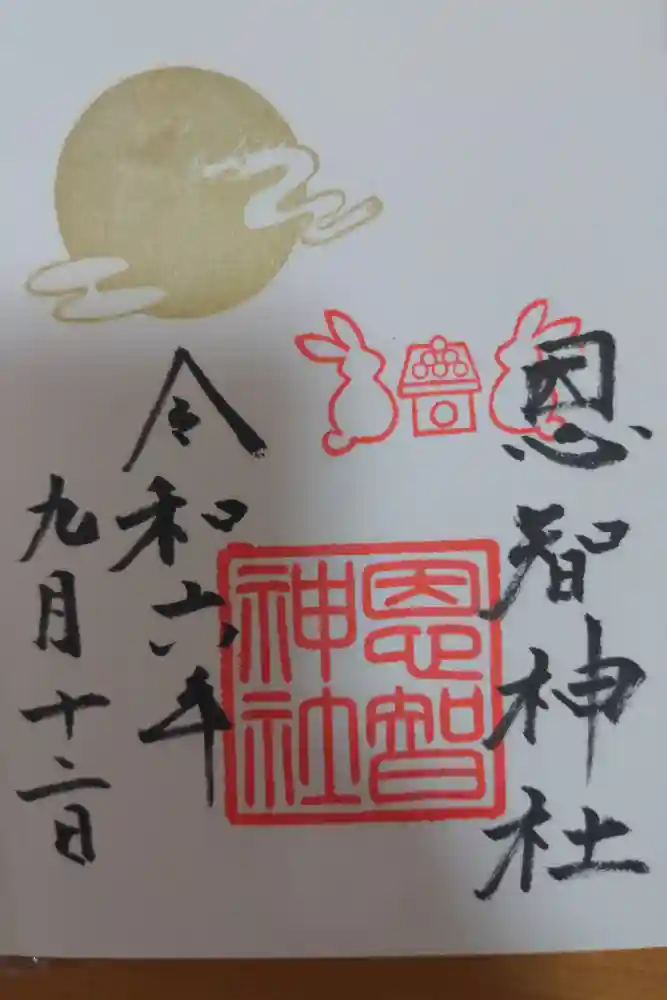 恩智神社
恩智
神社
令和六年
九月十二日